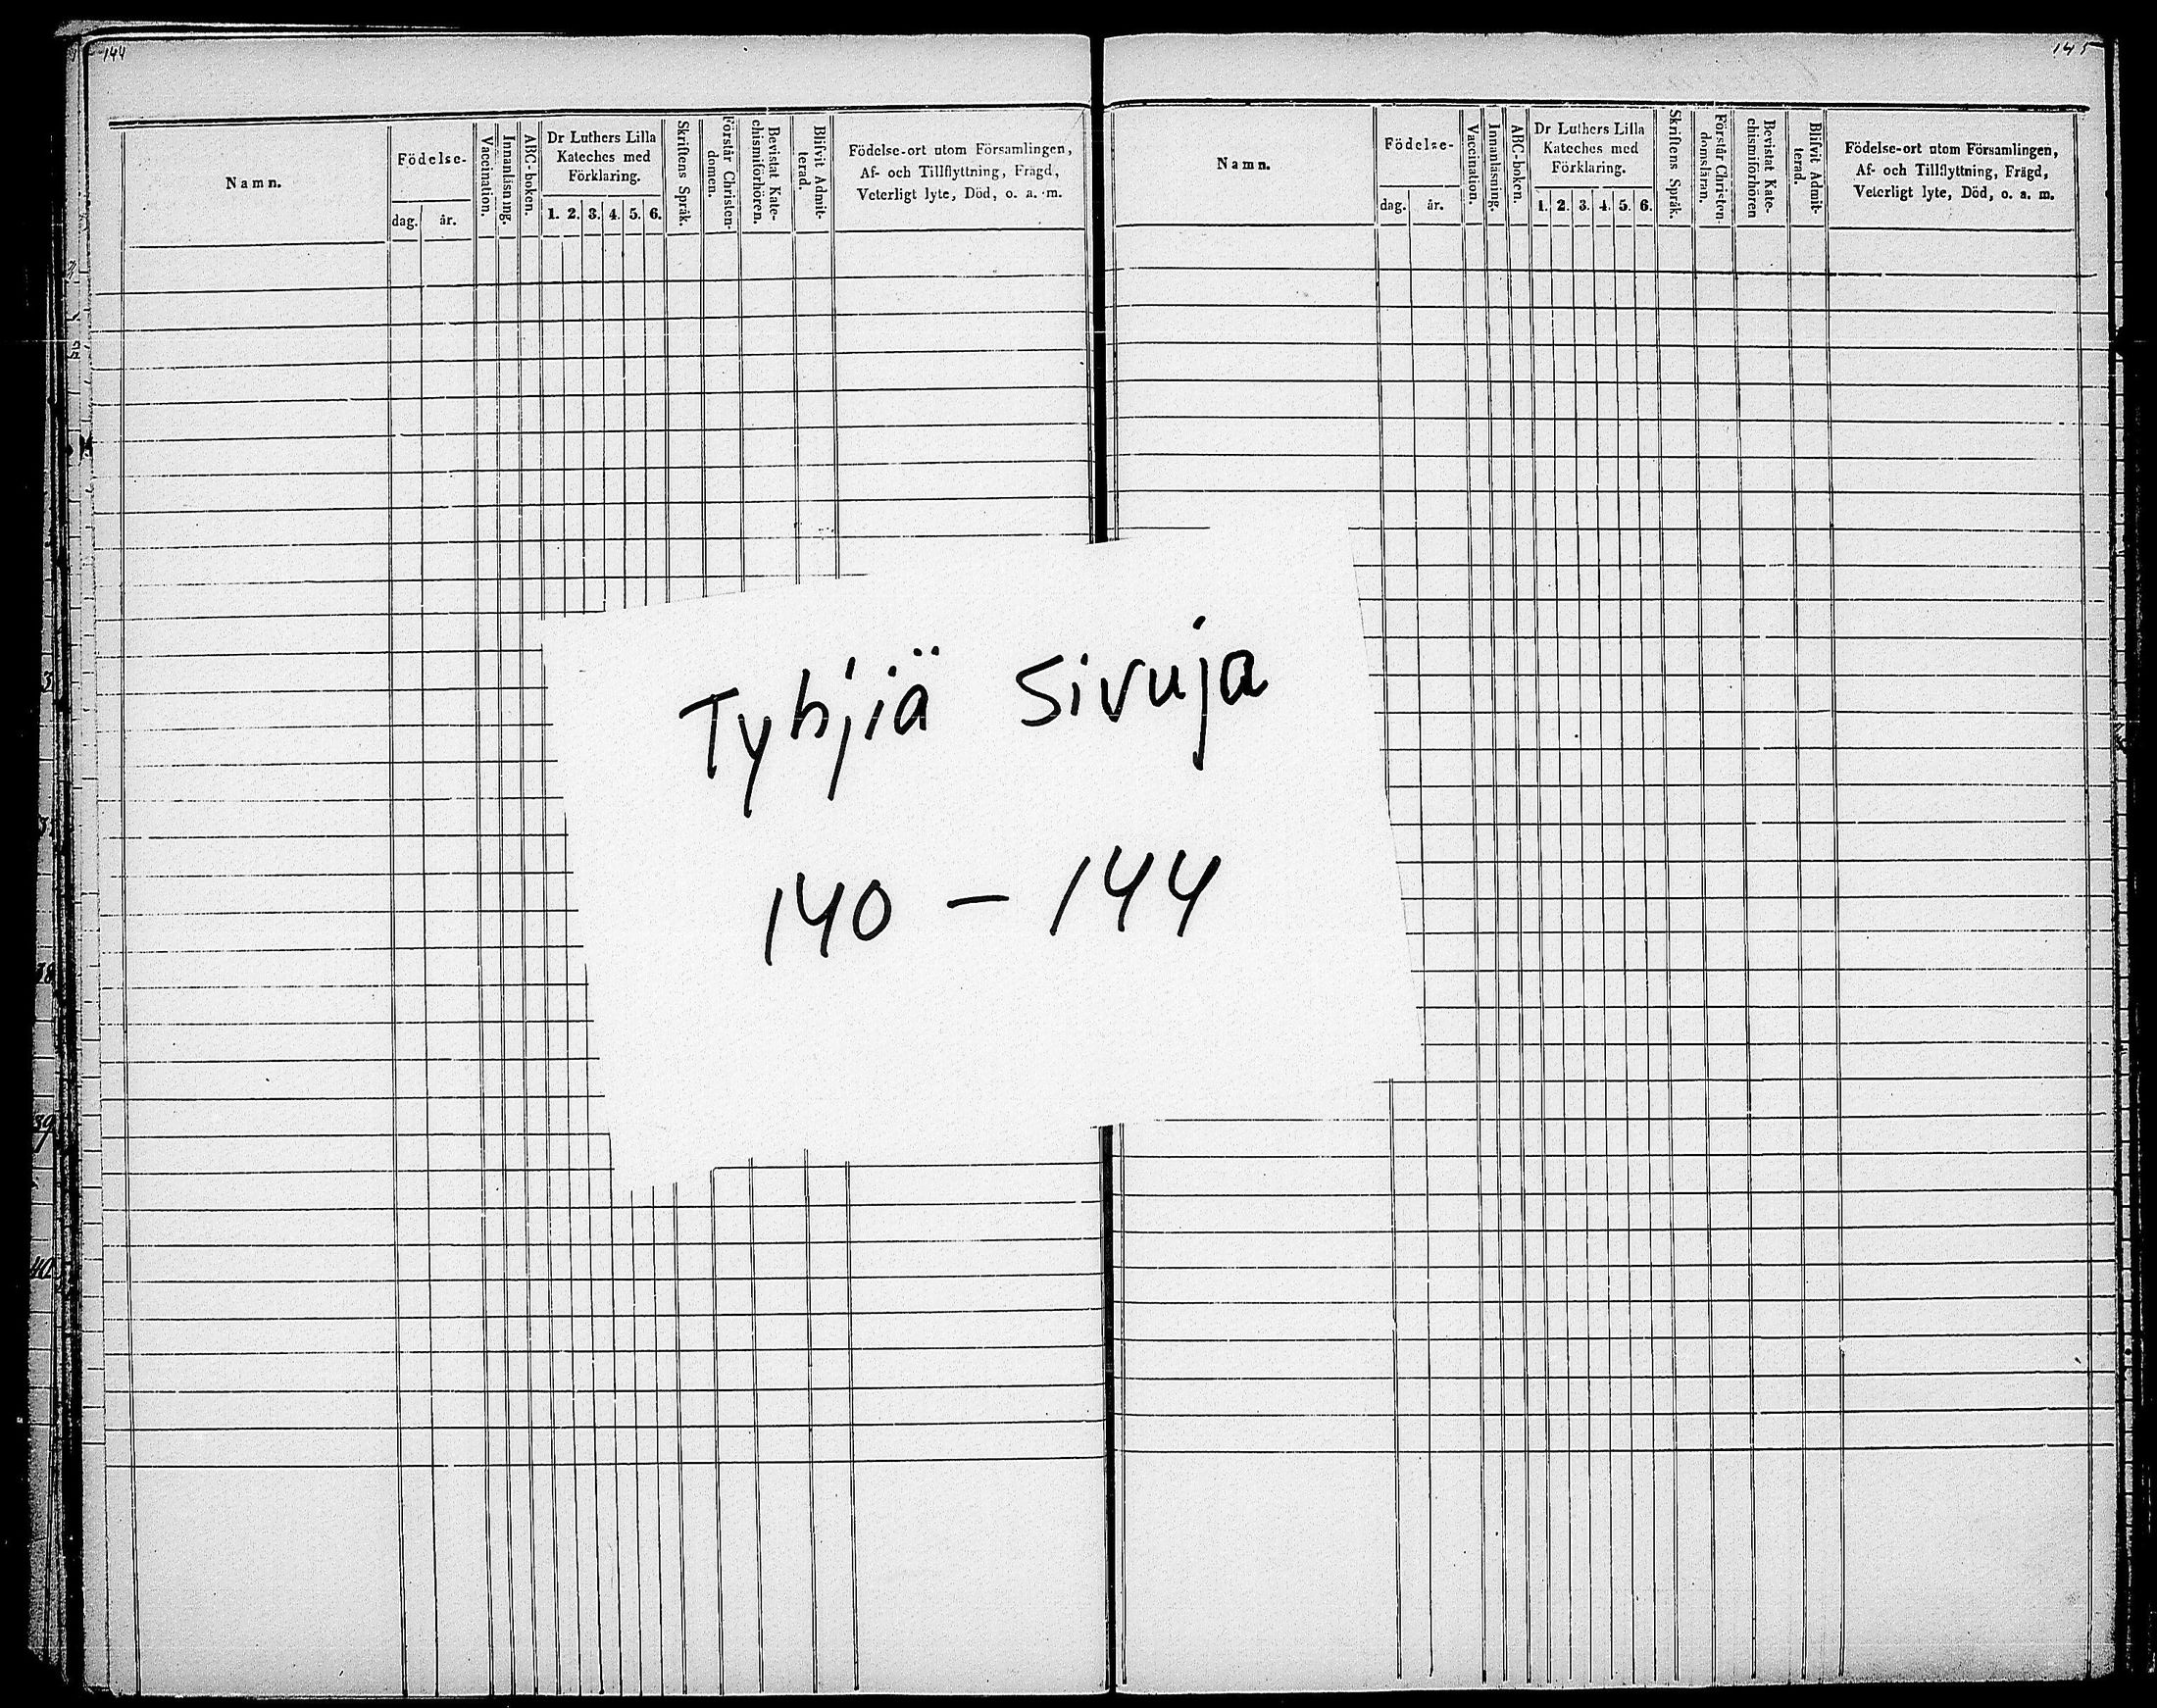 144
Namn.
Födelse-
dag.
år.
Vaccination.
Innanläsning.
ABC-boken.
Dr Luthers Lilla
Kateches med
Förklaring.
1. 2. 3. 4. 5. 6.
Skriftens Språk.
Förstår Christen-
domen.
Bevistat Kate-
chismiförhören.
Blifvit Admit-
terad.
Födelse-ort utom Församlingen,
Af- och Tillflyttning, Frägd,
Veterligt lyte, Död, o. a. m.
145
Namn.
Födelse-
dag.
år.
Vaccination.
Innanläsning.
ABC-boken.
Dr Luthers Lilla
Kateches med
Förklaring.
1. 2. 3. 4. 5. 6.
Skriftens Språk.
Förstår Christen-
domsläran.
Bevistat Kate-
chismiförhören
Blifvit Admit-
terad.
Födelse-ort utom Församlingen,
Af- och Tillflyttning, Frägd,
Veterligt lyte, Död, o. a. m.
Tyhjiä sivuja
140 – 144